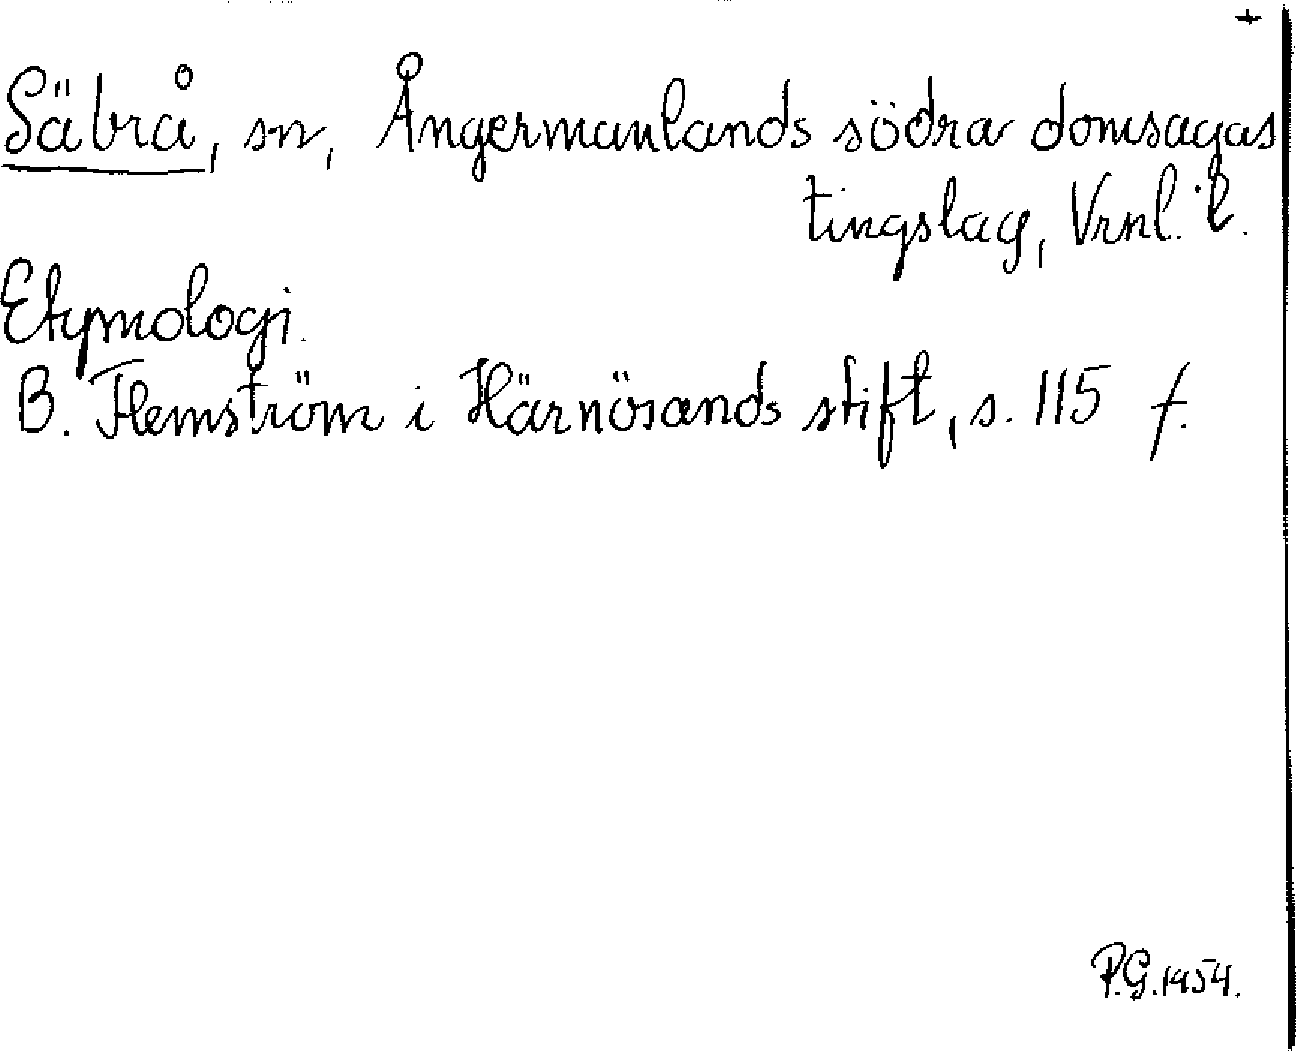 +
Säbrå, sn, Ångermanlands södra domsagas
tingslag, Vrnl. l.
Etymologi.
B. Flemström i Härnösands stift, s. 115 f.
P.G. 1954.